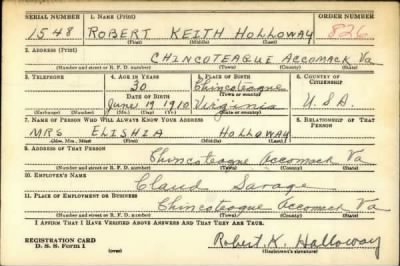 SERIAL NUMBER 1. NAME (Print) ORDER NUMBER
1548 ROBERT KEITH HOLLOWAY 826
(First) (Middle) (Last)
2. ADDRESS (Print)
CHINCOTEAGUE ACCOMACK Va
(Number and street or R. F. D. number) (Town) (County) (State)
3. TELEPHONE 4. AGE IN YEARS 5. PLACE OF BIRTH 6. COUNTRY OF CITIZENSHIP
30 Chincoteague
DATE OF BIRTH (Town or county)
June 19 1910 Virginia U.S.A.
(Exchange) (Number) (Mo.) (Day) (Yr.) (State or country)
7. NAME OF PERSON WHO WILL ALWAYS KNOW YOUR ADDRESS 8. RELATIONSHIP OF THAT PERSON
MRS ELISHIA HOLLOWAY
(Mr., Mrs., Miss) (First) (Middle) (Last)
9. ADDRESS OF THAT PERSON
Chincoteague Accomack Va
(Number and street or R. F. D. number) (Town) (County) (State)
10. EMPLOYER'S NAME
Claud Savage
11. PLACE OF EMPLOYMENT OR BUSINESS
Chincoteague Accomack Va
(Number and street or R. F. D. number) (Town) (County) (State)
I AFFIRM THAT I HAVE VERIFIED ABOVE ANSWERS AND THAT THEY ARE TRUE.
REGISTRATION CARD
D. S. S. Form 1 (over) Robert. K. Holloway
(Registrant's signature)